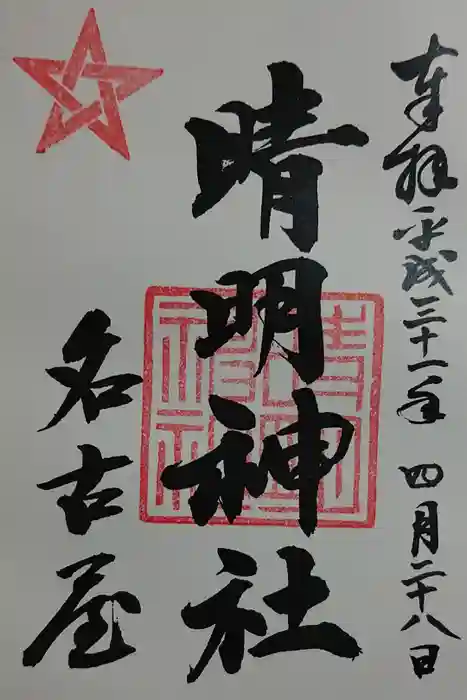 奉拝 平成三十一年 四月二十八日
晴明神社
名古屋
晴明神社